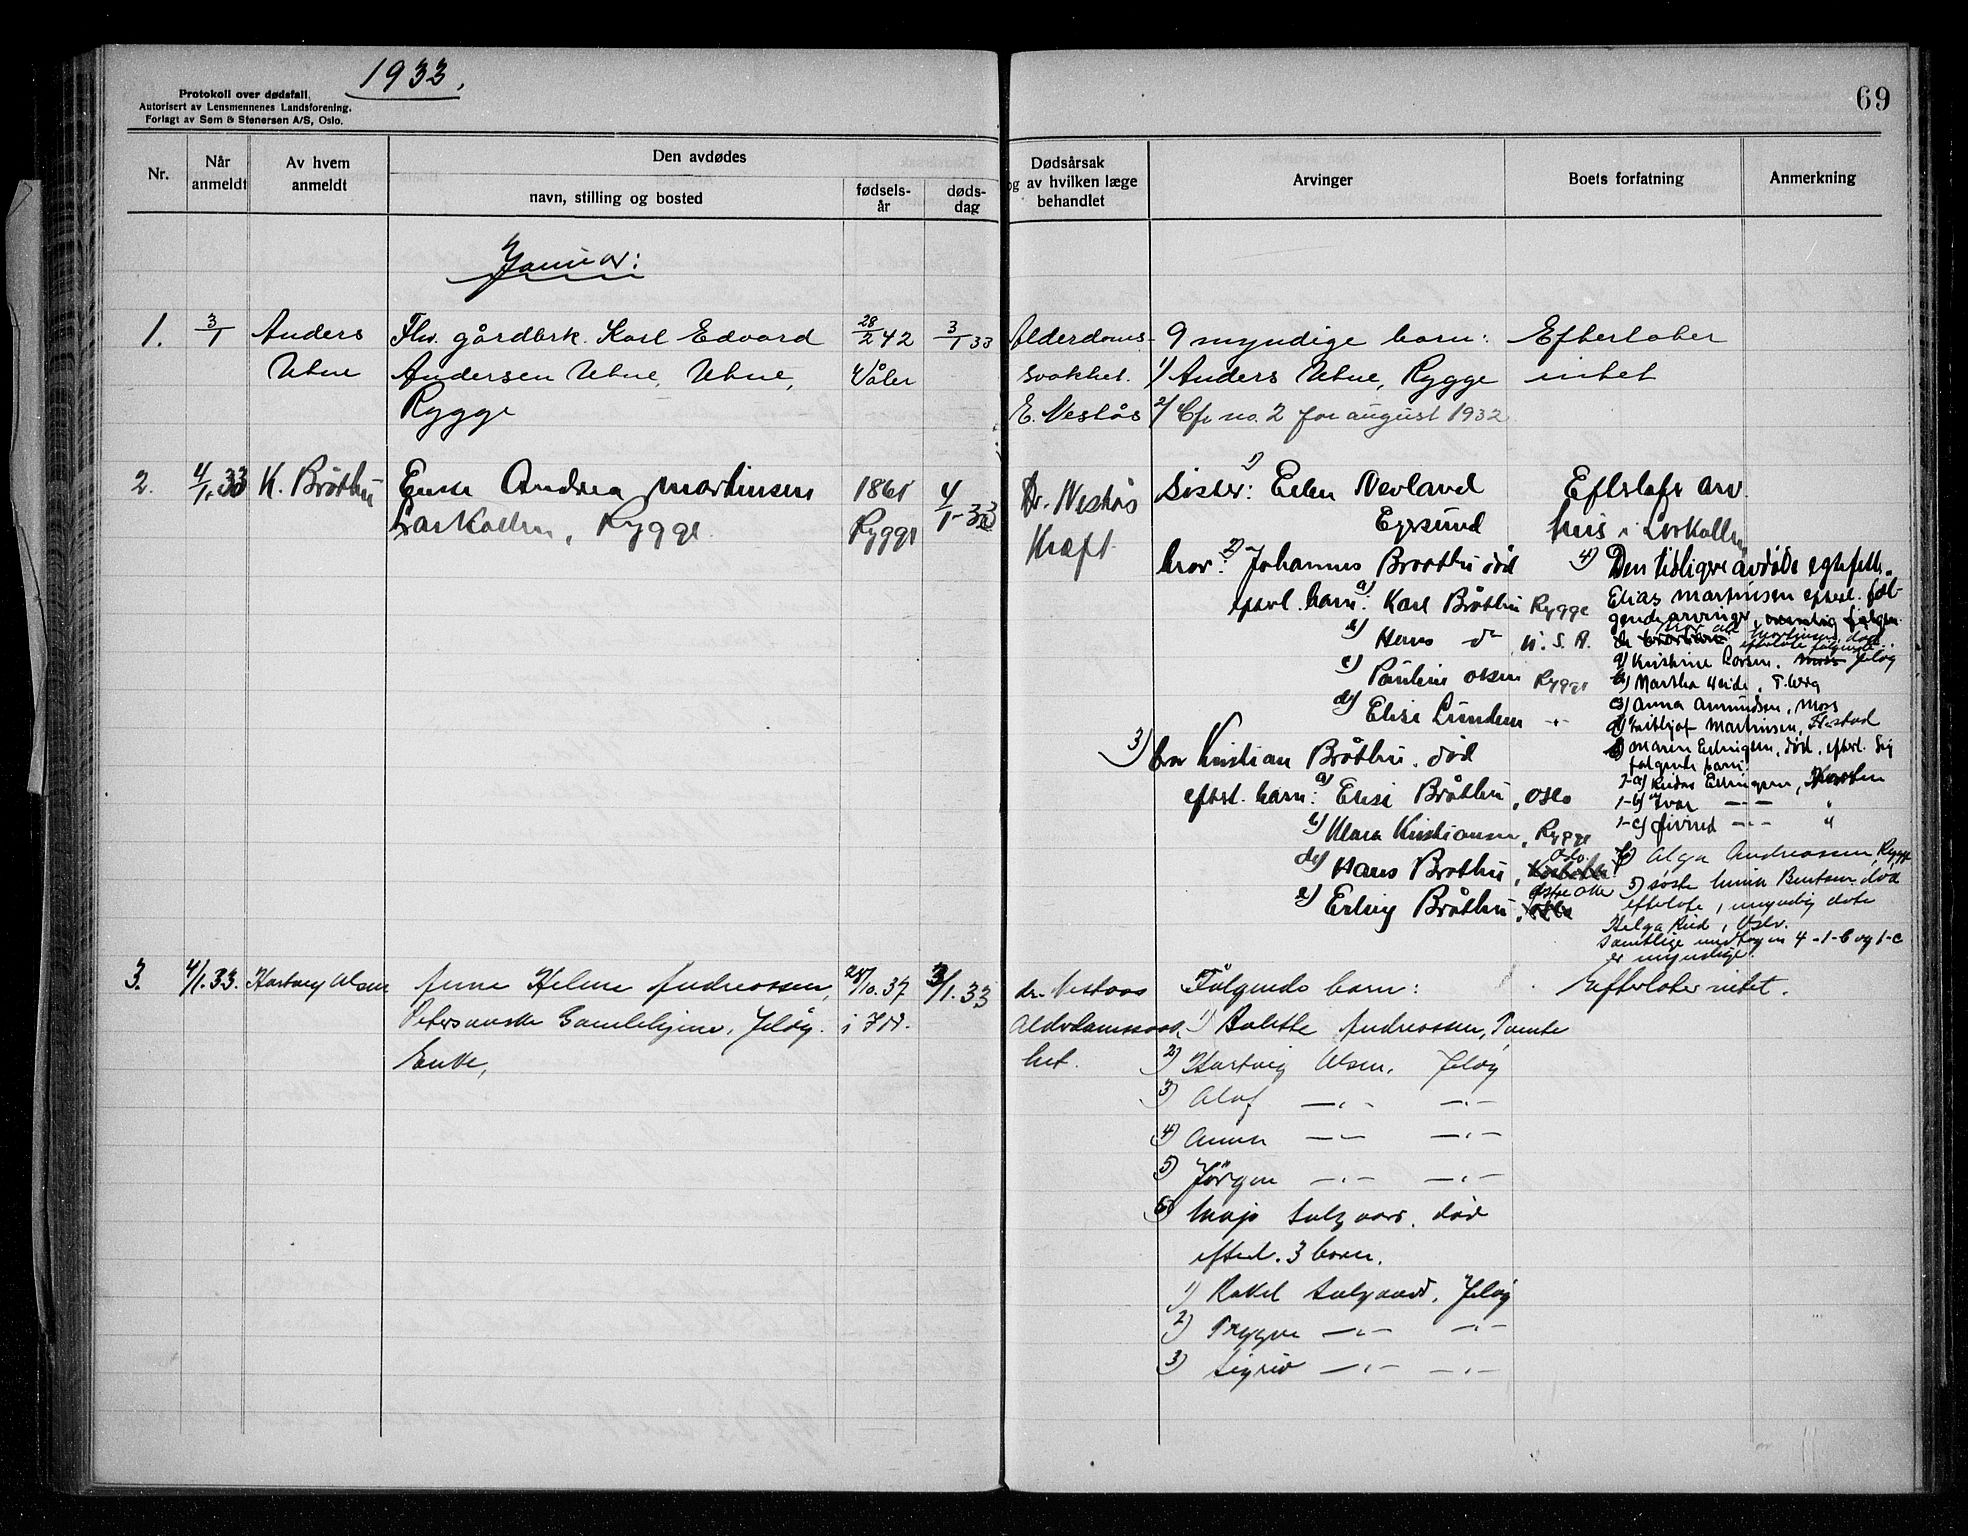 1933.
69
Protokoll over dødsfall.
Autorisert av Lensmennenes Landsforening.
Forlagt av Sem & Stenersen A/S, Oslo.
Nr.
Når anmeldt
Av hvem anmeldt
Den avdødes
navn, stilling og bosted
fødsels-år
døds-dag
Dødsårsak
og av hvilken læge
behandlet
Arvinger
Boets forfatning
Anmerkning
Januar:
1. 3/1 Anders Fhv. gårdbrk. Karl Edvard 28/2 42 3/1 33 Alderdoms- 9 myndige barn: Efterlater
Utne Andersen Utne, Utne, Våler svakhet. 1) Anders Utne, Rygge intet
Rygge E. Nestås 2/ Cfr no. 2 for august 1932
2. 4/1.33 K. Bråthu Enke Andrea Martinsen 1861 4/1-33 Dr. Nestås Søster: 1) Elen Nevland Efterlater
Larkollen, Rygge. Rygge Kræft. Egersund hus i Larkollen
bror: 2) Johannes Braathu død 4) Den tidligere avdøde egtefelle
efterl. barn: a) Karl Bråthu Rygge Elias Martinsen efterl. føl-
b) Hans do U.S.A. gende arvinger,
Martinsen, død
efterlate følgende
c) Pauline Olsen Rygge a) Kristine Larsen. Moss Jeløy
b) Martha Heide, T.berg
d) Elise Lunden -"- c) Anna Amundsen, Moss
d) Frithjof Martinsen,
3) bror Kristian Bråthu. død Maren Erlingsen, død, efterl. sig
følgende barn:
efterl. barn: a) Elise Bråthu, Oslo 1-a) Reidar Erlingsen,
1-b) Ivar -"- "
b) Klara Kristiansen, Rygge 1-c) Øivind -"- "
d) Hans Bråthu, Oslo f) Olga Andreassen, Rygge
e) Erling Bråthu, Østre Oslo 5) søster Bentsen død
efterlate 1 myndig dater
Helga Ried, Oslo.
samtlige undtagen 4-1-b og 1-c
er myndige.
3. 4/1.33. Hartvig Olsen Anne Helene Andreassen, 28/10.37 3/1.33 dr. Nestaas Følgende barn: Efterlater intet.
Petersønske Gamlehjem, Jeløy. i Alderdomssvak- 1) Bolette Andreassen, Tomte
Enke, het. 2) Hartvig Olsen, Jeløy
3) Olaf -"- -"-
4) Anna -"- -"-
5) Jørgen -"- -"-
6) Maja Solgaard, død
efterl. 3 barn.
1) Rakel Solgaard, Jeløy
2) Trygve -"- -"-
3) Sigrid -"- -"-